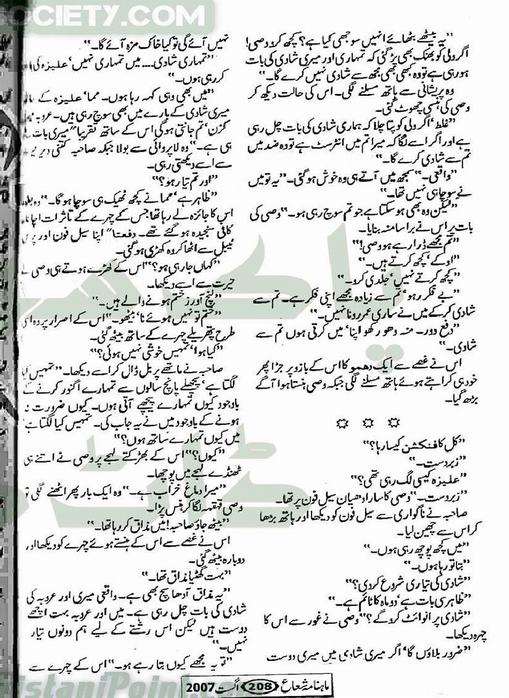 SOCIETY.COM
”یہ بیٹھے بٹھائے انہیں سوجھی کیا ہے؟ کچھ کرو وصی!
اگر ولی کو بھنک بھی پڑ گئی کہ تمہاری اور میری شادی کی بات
ہو رہی ہے تو وہ کبھی بھی مجھ سے شادی نہیں کرے گا۔“
وہ پریشانی سے ہاتھ مسلنے لگی۔ اس کی حالت دیکھ کر
وصی کی ہنسی چھوٹ گئی۔
”غلط‘ اگر ولی کو پتا چلا کہ ہماری شادی کی بات چل رہی
ہے اور اگر اسے لگا کہ میرا تم میں انٹرسٹ ہے تو وہ ضد میں
تم سے شادی کرے گا۔“
”واقعی۔“ سمجھ میں آتے ہی وہ خوش ہو گئی۔ ”یہ تو میں
نے سوچا ہی نہیں تھا۔“
”لیکن وہ بھی ہو سکتا ہے جو تم سوچ رہی ہو۔“ وصی کی
بات پر اس نے برا سا منہ بنایا۔
”تم مجھے ڈرا رہے ہو وصی!“
”اوکے‘ کچھ کرتے ہیں۔“
”کچھ کرتے نہیں‘ جلدی کرو۔“
”بے فکر رہو‘ تم سے زیادہ مجھے اپنی فکر ہے۔ تم سے
شادی کر کے میں نے ساری عمر رونا نہیں۔“
”دفع دور۔ منہ دھو رکھو اپنا‘ میں کرتی ہوں تم سے
شادی۔“
اس نے غصے سے ایک دھموکا اس کے بازو پر جڑا پھر
خود ہی کراہتے ہوئے ہاتھ مسلنے لگی جبکہ وصی ہنستا ہوا آگے
بڑھ گیا۔
☆ ☆ ☆
”کل کا فنکشن کیسا رہا؟“
”زبردست۔“
”علیزہ کیسی لگ رہی تھی؟“
”زبردست۔“ وصی کا سارا دھیان سیل فون پر تھا۔
صاحبہ نے ناگواری سے سیل فون کو دیکھا اور ہاتھ بڑھا
کر اس سے چھین لیا۔
”میں کچھ پوچھ رہی ہوں۔“
”بتا تو رہا ہوں۔“
”شادی کی تیاری شروع کر دی؟“
”ظاہر سی بات ہے‘ دو ماہ کا ٹائم ہے۔“
”شادی پر انوائٹ کرو گے؟“ وصی نے غور سے اس کا
چہرہ دیکھا۔
”ضرور بلاؤں گا‘ اگر میری شادی میں میری دوست
نہیں آئے گی تو کیا خاک مزہ آئے گا۔“
”تمہاری شادی.... میں تمہاری نہیں‘ علیزہ کی
کر رہی ہوں۔“
”میں بھی وہی کہہ رہا ہوں۔ مما‘ علیزہ کے
میری شادی کے بارے میں بھی سوچ رہی ہیں۔
کزن‘ تم جانتی ہو گی اس کے ساتھ تقریباً“ میری بات
ہی ہے۔“ وہ لاپروائی سے بولا جبکہ صاحبہ کتنی دیر
سے اسے دیکھتی رہی۔
”اور تم تیار ہو؟“
”ظاہر ہے‘ مما نے کچھ ٹھیک ہی سوچا ہو گا۔“
اس کا جائزہ لے رہا تھا جس کے چہرے کے تاثرات
کافی سنجیدہ ہو گئے تھے۔ دفعتاً“ اپنا سیل فون اور
ٹیبل سے اٹھا کر وہ کھڑی ہو گئی۔
”کہاں جا رہی ہو؟“ اس کے کھڑے ہوتے ہی وصی
حیرت سے اسے دیکھا۔
”لنچ آورز ختم ہونے والے ہیں۔“
”ختم تو نہیں ہوئے نا‘ بیٹھو۔“ اس کے اصرار پر وہ
طرح پتھریلے چہرے کے ساتھ بیٹھ گئی۔
”کیا ہوا‘ تمہیں خوشی نہیں ہوئی؟“
صاحبہ نے ماتھے پر بل ڈال کر اسے دیکھا۔ ”تمہیں
لگتا ہے‘ پچھلے پانچ سالوں سے تمہارے اگنور کرنے
باوجود کیوں تمہارے پیچھے آتی ہوں۔ کیوں ضرورت نہ
ہونے کے باوجود میں نے یہ جاب کی۔ تمہیں کیا لگتا
میں کیوں تمہارے ساتھ ہوں؟“
”کیوں؟“ اس کے بھڑکتے لہجے پر وصی نے اتنے ہی
ٹھنڈے لہجے میں پوچھا۔
”میرا دماغ خراب ہے۔“ وہ ایک بار پھر اٹھنے لگی تو
وصی قہقہہ لگا کر ہنس پڑا۔
”بیٹھ جاؤ صاحبہ! میں مذاق کر رہا تھا۔“
اس نے غصے سے اس کے ہنستے ہوئے چہرے کو دیکھا اور
دوبارہ بیٹھ گئی۔
”بہت گھٹیا مذاق تھا۔“
”یہ مذاق آدھا سچ بھی ہے۔ واقعی میری اور عروبہ کی
شادی کی بات چل رہی ہے۔ میں اور عروبہ بہت اچھے
دوست ہیں لیکن اس رشتے کے لیے ہم دونوں تیار
نہیں۔“
”تو یہ مجھے کیوں بتا رہے ہو۔“ اس کے چہرے سے
ماہنامہ شعاع 208 اگست 2007